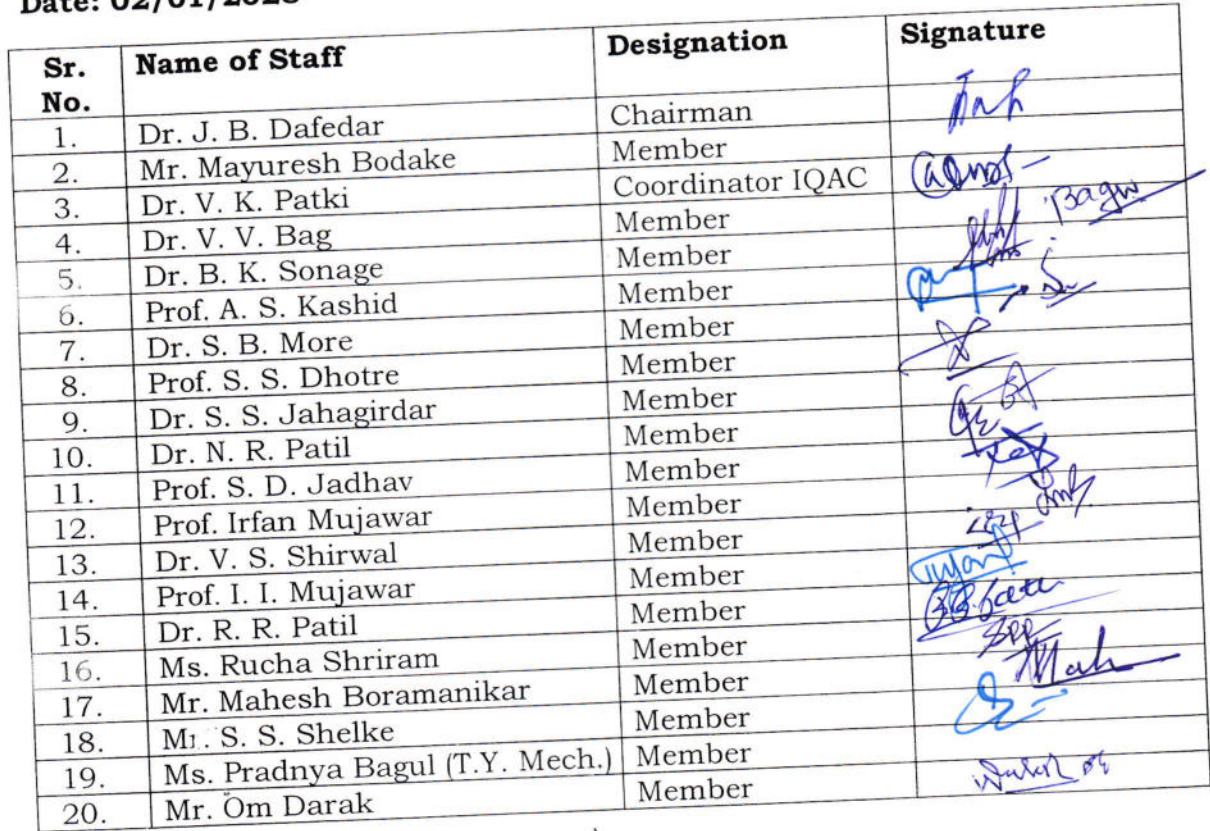 Date: 02/01/2023
Sr. No. Name of Staff Designation Signature
1. Dr. J. B. Dafedar Chairman
2. Mr. Mayuresh Bodake Member
3. Dr. V. K. Patki Coordinator IQAC
4. Dr. V. V. Bag Member
5. Dr. B. K. Sonage Member
6. Prof. A. S. Kashid Member
7. Dr. S. B. More Member
8. Prof. S. S. Dhotre Member
9. Dr. S. S. Jahagirdar Member
10. Dr. N. R. Patil Member
11. Prof. S. D. Jadhav Member
12. Prof. Irfan Mujawar Member
13. Dr. V. S. Shirwal Member
14. Prof. I. I. Mujawar Member
15. Dr. R. R. Patil Member
16. Ms. Rucha Shriram Member
17. Mr. Mahesh Boramanikar Member
18. Mr. S. S. Shelke Member
19. Ms. Pradnya Bagul (T.Y. Mech.) Member
20. Mr. Om Darak Member